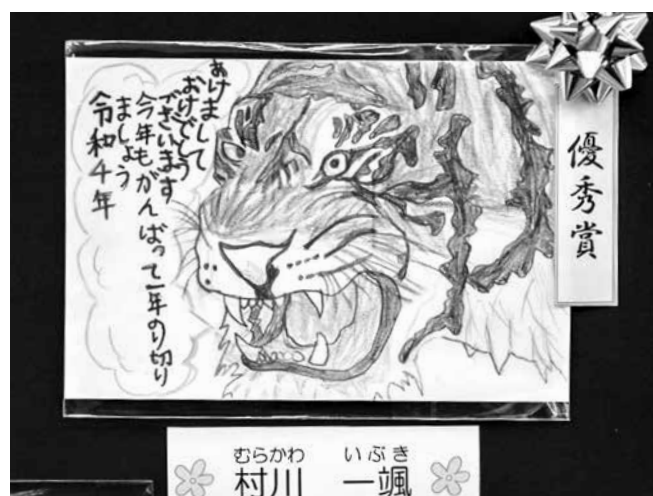 あけまして
おめでとう
ございます
今年もがんばって一年のり切り
ましょう
令和4年
優秀賞
むらかわ いぶき
村川 一颯